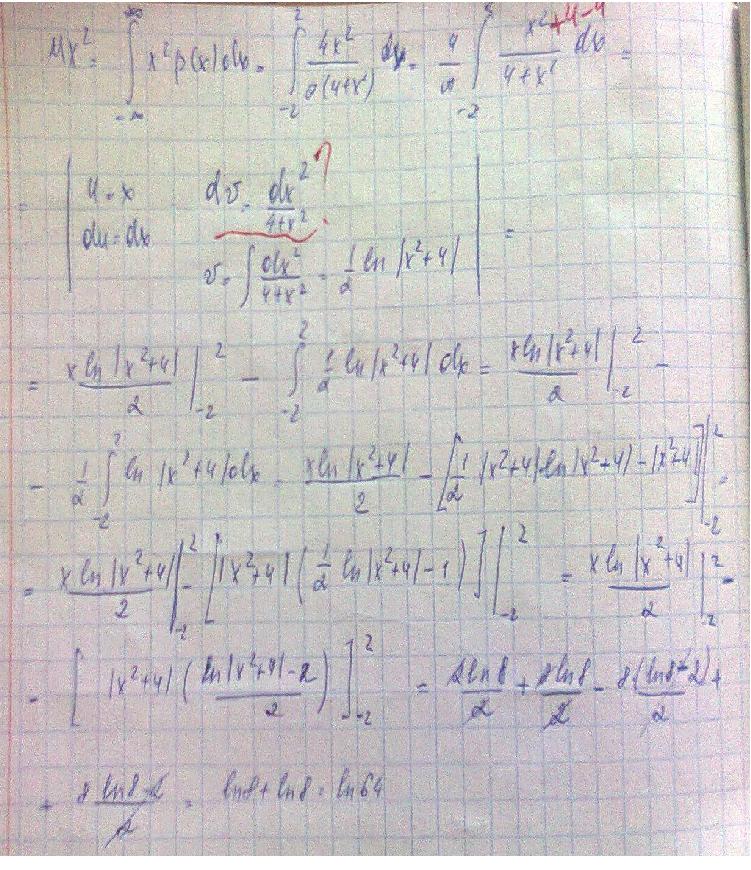 Mx² = ∫_{-∞}^{∞} x² p(x) dx = ∫_{-2}^{2} 4x²/π(4+x²) dx = 4/π ∫_{-2}^{2} x²+4-4/4+x² dx =
= | u = x dv = dx²/4+x² ?
du = dx v = ∫ dx²/4+x² = 1/2 ln |x²+4| | =
= x ln |x²+4|/2 |_{-2}^{2} - ∫_{-2}^{2} 1/2 ln |x²+4| dx = x ln |x²+4|/2 |_{-2}^{2} -
- 1/2 ∫_{-2}^{2} ln |x²+4| dx = x ln |x²+4|/2 - [1/2 |x²+4| ln |x²+4| - |x²+4|] |_{-2}^{2} =
= x ln |x²+4|/2 |_{-2}^{2} - [|x²+4| (1/2 ln |x²+4| - 1)] |_{-2}^{2} = x ln |x²+4|/2 |_{-2}^{2} -
- [|x²+4| (ln |x²+4| - 2/2)]_{-2}^{2} = 2 ln 8/2 + 2 ln 8/2 - 8(ln 8 - 2)/2 +
+ 8 ln 8 - 2/2 = ln 8 + ln 8 = ln 64